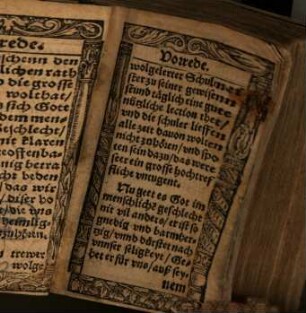 rede.
schenn den
lichen rath
die grosse
wolthat/
sich Gott
dem men
Geschlecht/
ne klaren
offenba
nig herin
cht beden
das wir
diser ho
die vns
treweʒ
wolge
Vorrede.
wolgelerter Schul
ster zu seiner gewissen
stund täglich eine gute
nützliche lection thet/
vnd die schuler lieffen
alle zeit davon wolten
nicht zuhören/ vnd spo
ten sein dazu/ das were
ster ein grosse hochtre
fliche vntugent.
Nu geet es Got im
menschliche geschlecht
nit vil anders/ er ist so
gnedig vnd barmher
tzig/ vnnd dürstet nach
vnser seligkeyt/ Ge
het er für vns/ auß sey
nem